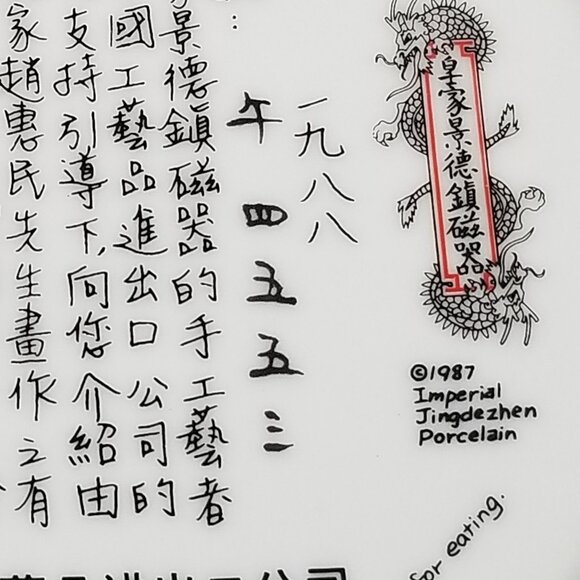 皇家景德鎮磁器
©1987
Imperial
Jingdezhen
Porcelain
一九八八
午四五五三
景德鎮磁器的手工藝者
國工藝品進出口公司的
支持引導下,向您介紹由
家趙惠民先生畫作之有
for eating.